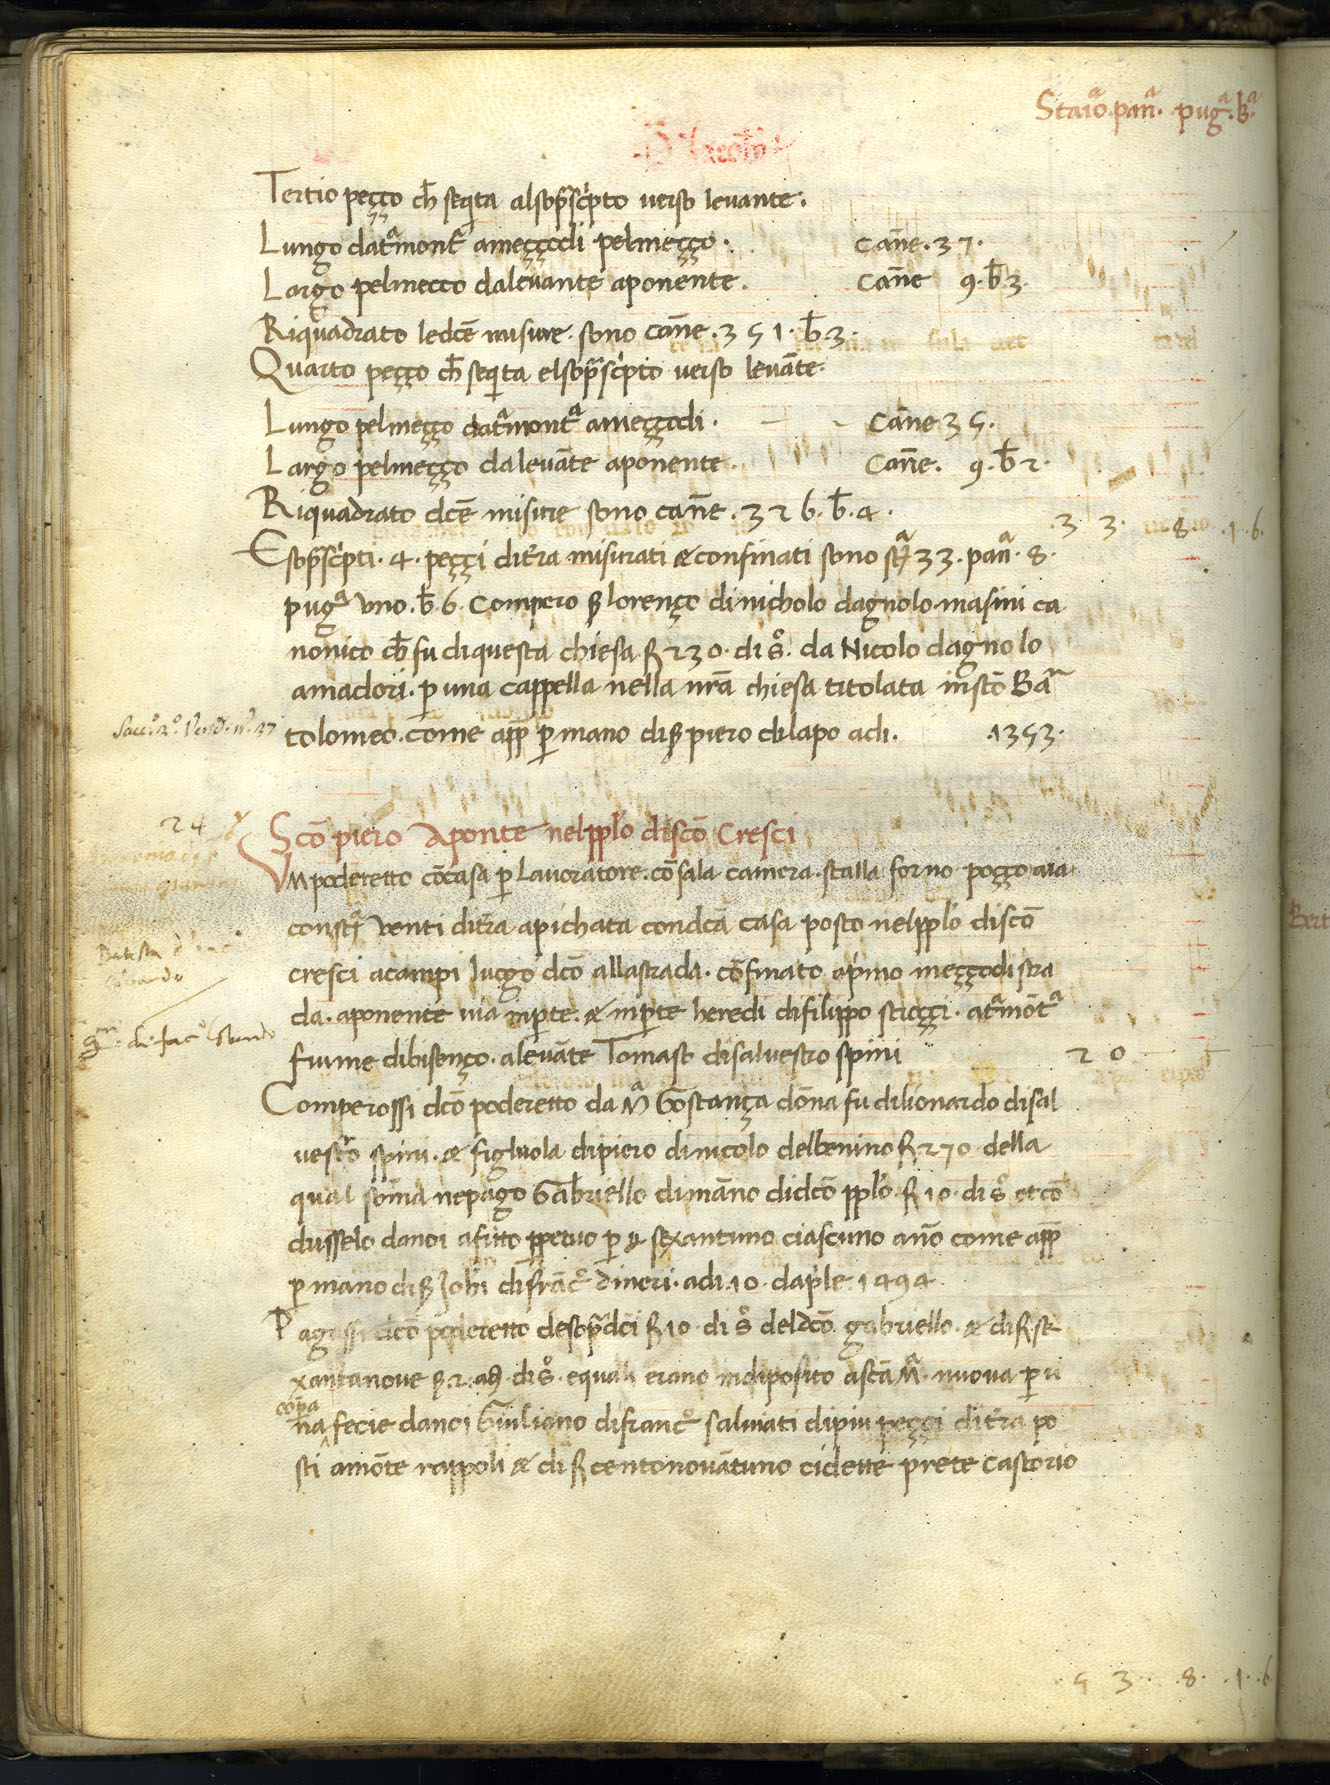 Staio᷎ᵃ. panᵃ. pugᵃ. b̄ᵃ
Tertio peçço ch̄ seq̄ta alsop̄ascpto verso levante.
Lungo datᵃmontᵃ ameççodi pelmeçço. Can̄e. 37.
Largo pelmecco dalevante aponente. Can̄e 9. b̄ 3.
Riquadrato ledcē misure. sono can̄e. 351. b̄. 3.
Quarto peçço ch̄ seq̄ta elsop̄ascpto verso levāte.
Lungo pelmeçço datᵃmontᵃ ameççodi. Can̄e 35.
Largo pelmeçço dalevāte aponente. Can̄e. 9. b̄ 2.
Riquadrato dcē misure sono can̄e. 326. b̄. 4.
.3 3. 8. .1. 6.
Esop̄ascpti. 4. peççi ditr̄a misurati & confinati sono stᵃ 33. panᵃ. 8.
pugᵃ uno. b̄. 6. Compero s̄ lorenço dinicholo dagnolo masini ca
nonico ch̄ fu diquesta chiesa f 230. di s̊. da Nicolo dagnolo
amadori. p una cappella nella nr̄a chiesa titolata insc̄o Baᵃ
tolomeo. come app̄ p mano dis̄ piero dilapo adi. .1353.
24
Sc̄o piero Aponte nelpplō disc̄o Cresci
Vn poderetto cōcasa p lavoratore. cō sala camera. stalla forno poçço aia
const̄ venti ditr̄a apichata condcā casa posto nelpplō disc̄o
cresci acampi luogo dc̄o allastrada. cōfinato ap̄mo meççodi stra
da. aponente via inp̄te. & inp̄te heredi difilippo stroççi. atᵃmōtᵃ
fiume dibisenço. alevāte Tomaso disalvestro spini 20
Comperossi dc̄o poderetto da Mᵃ Gostança dōna fu dilionardo disal
vestr̄o spini. & figluola dipiero dinicolo delbenino f 270 della
qual som̄a nepago Gabriello dimān̄o didc̄o pplō. f 10. di s̊ et cō
dusselo danoi afitto ppetuo p sexantuno ciascuno an̄o come app̄
p mano dis̄ Johī difrāc̊ dineri. adi. 10. dap̄le. 1494.
Pagossi dc̄o poderetto desop̄adcī f 10. di s̊ deldc̄o gabriello. & di f se
xantanove di s̊. equali erano indiposito asc̄a Mᵃ. nuova p u
cōpa
na fecie danoi Giuliano difranc̊ salviati dipiu peççi ditr̄a po
sti amōte rappoli & di f centonovātuno cidette prete Castorio
5 3. .8. .1. .6.